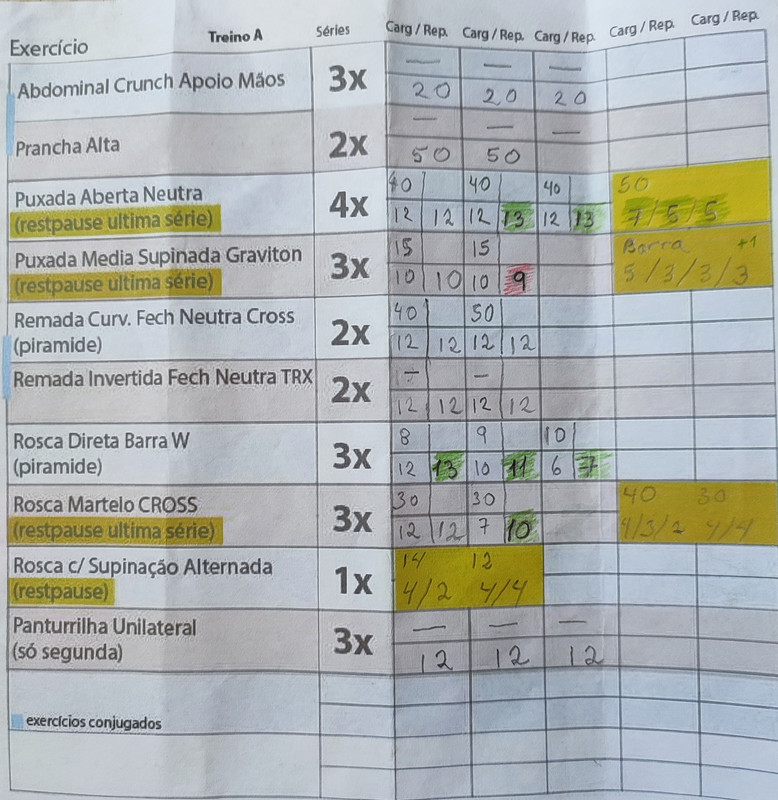 Exercício Treino A Séries Carg / Rep. Carg / Rep. Carg / Rep. Carg / Rep. Carg / Rep.
Abdominal Crunch Apoio Mãos 3x — — —
20 20 20
Prancha Alta 2x — — —
50 50
Puxada Aberta Neutra 4x 40 40 40 50
(restpause ultima série) 12 12 12 13 12 13 7/5/5
Puxada Media Supinada Graviton 3x 15 15 Barra +1
(restpause ultima série) 10 10 10 9 5/3/3/3
Remada Curv. Fech Neutra Cross 2x 40 50
(piramide) 12 12 12 12
Remada Invertida Fech Neutra TRX 2x — —
12 12 12 12
Rosca Direta Barra W 3x 8 9 10
(piramide) 12 13 10 11 6 7
Rosca Martelo CROSS 3x 30 30 40 30
(restpause ultima série) 12 12 7 10 4/3/2 4/4
Rosca c/ Supinação Alternada 1x 14 12
(restpause) 4/2 4/4
Panturrilha Unilateral 3x — — —
(só segunda) 12 12 12
exercícios conjugados